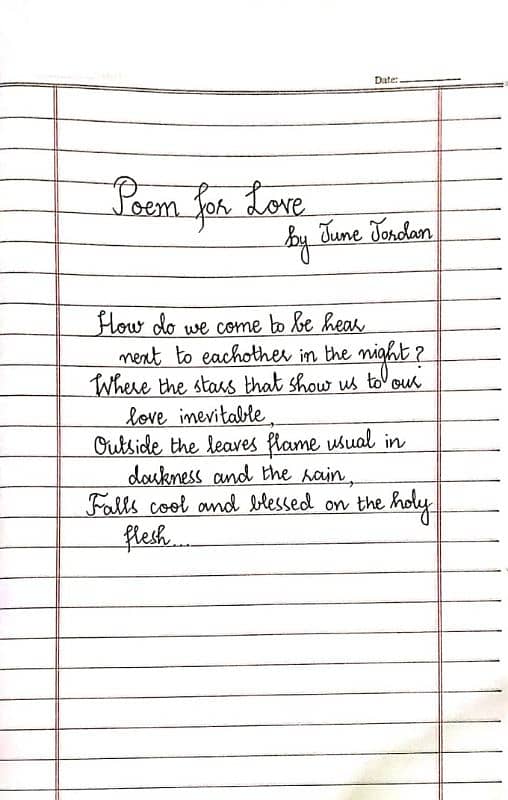 Date:
Poem for Love
by June Jordan
How do we come to be hear
next to eachother in the night?
Where the stars that show us to our
love inevitable,
Outside the leaves flame usual in
darkness and the rain,
Falls cool and blessed on the holy
flesh...